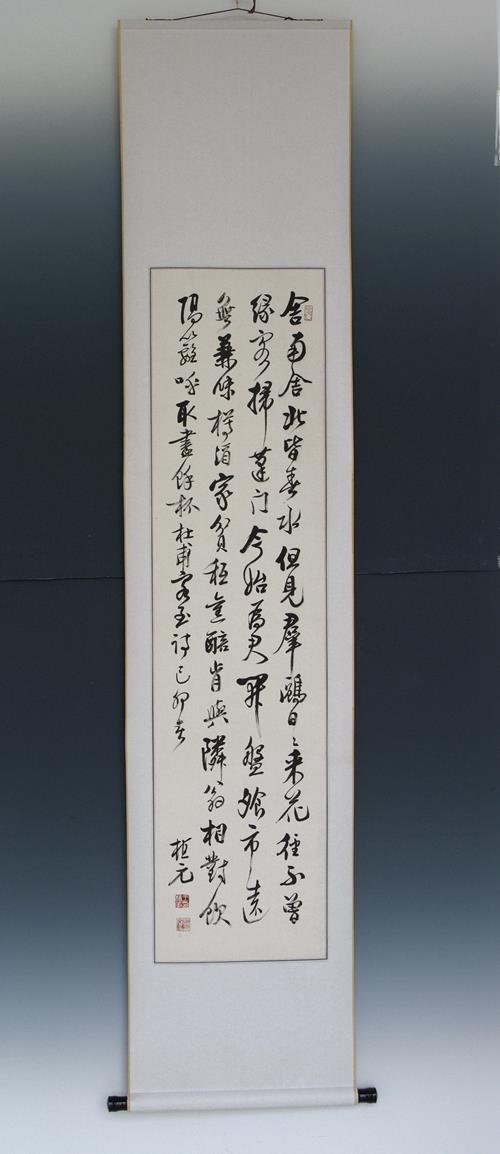 舍南舍北皆春水但見羣鷗日々来花徑不曾
緣客掃蓬門今始為君開盤飧市遠
無兼味樽酒家貧秪舊醅肯與隣翁相對飲
隔籬呼取盡餘杯杜甫客至詩己卯春
元